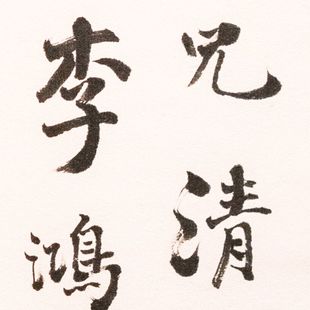 兄清
李鴻